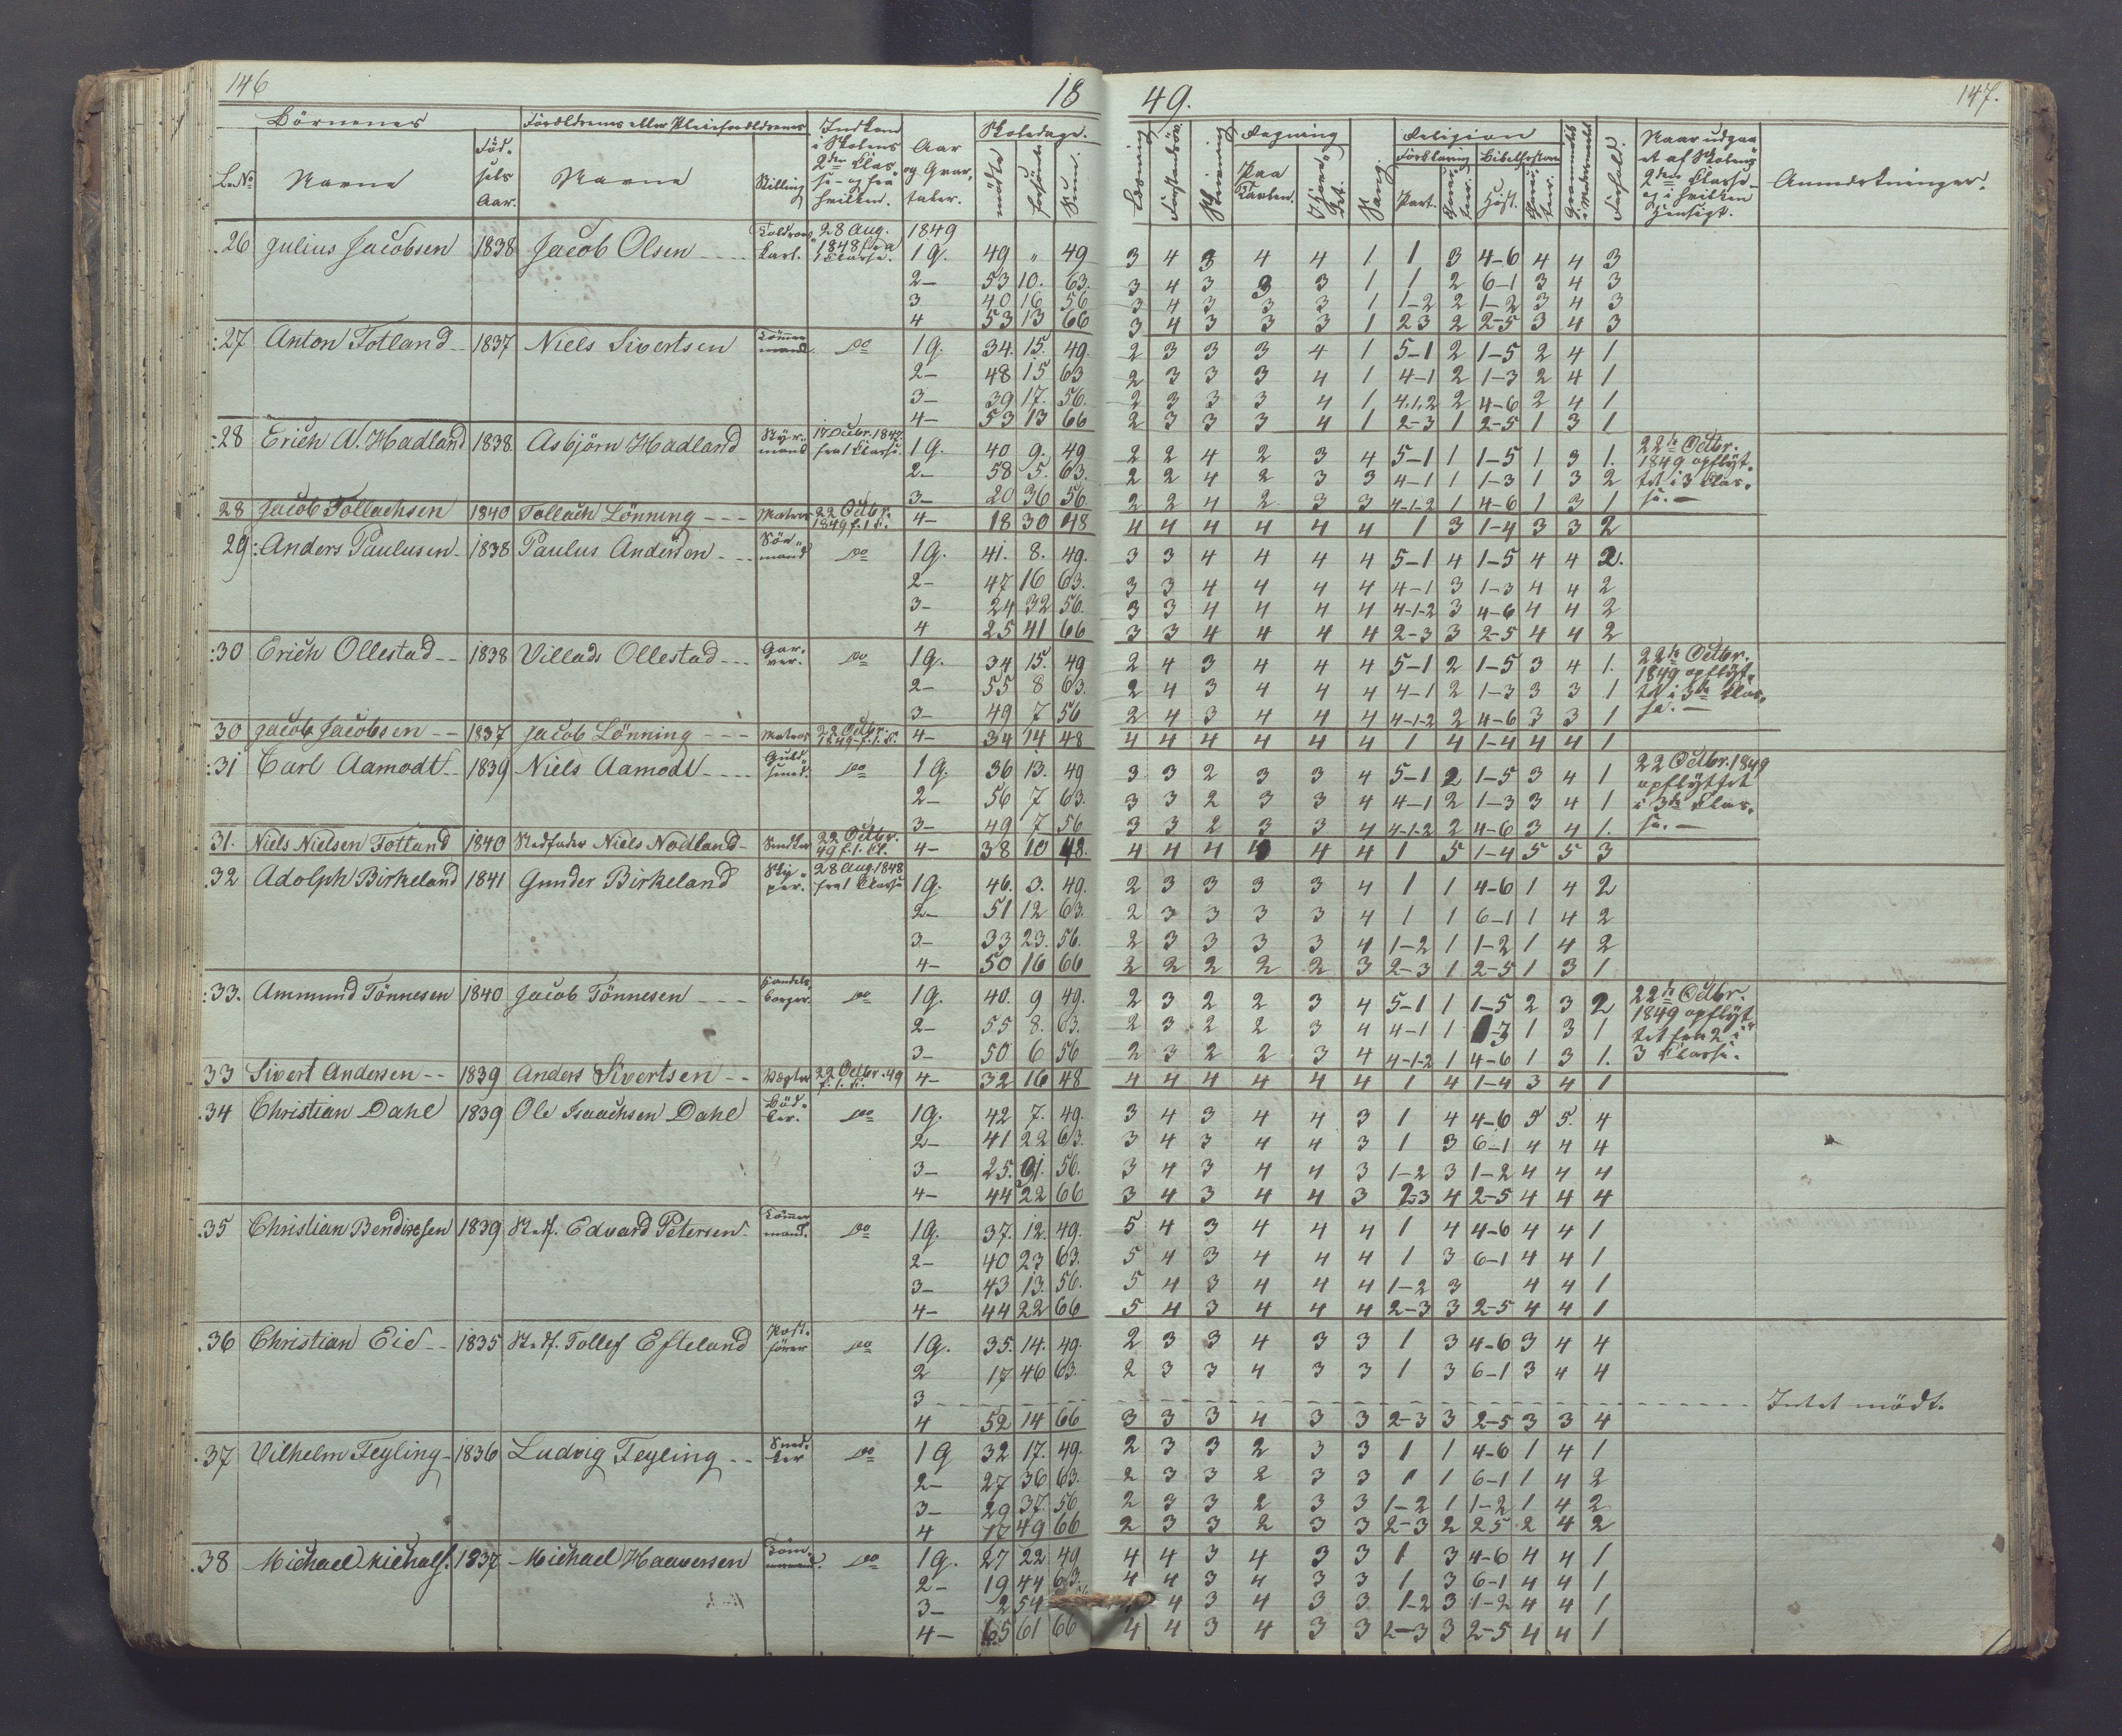 146 18 49. 147.
Börnenes Forældrenes eller Pleieforældrenes Indkom i Skolens 2den Classe og fra hvilken. Aar og Qvartaler. Skoledage. Læsning Skrivning Regning Sang. Religion Naar udgaaet af Skolens 2den Classe og i hvilken Hensigt. Anmærkninger.
L.No Navne Födsels Aar. Navne Stilling mödte forsömte Sum. Paa Tavlen. Forklaring Bibelhistorie Part. Hist.
26 Julius Jacobsen 1838 Jacob Olsen 28 Aug. 1848 fra 1 Classe. 1849
1 Q. 49 " 49 3 4 3 4 4 1 1 3 4-6 4 4 3
2- 53 10. 63. 3 4 3 3 3 1 1 2 6-1 3 4 3
3 40 16 56 3 4 3 3 3 1 1-2 2 1-2 3 4 3
4 53 13 66 3 4 3 3 3 1 23 2 2-5 3 4 3
27 Anton Totland 1837 Niels Sivertsen Tömmermand do 1 Q. 34. 15. 49. 2 3 3 3 4 1 5-1 2 1-5 2 4 1
2- 48 15 63 2 3 3 3 4 1 4-1 2 1-3 2 4 1
3- 39 17. 56. 2 3 3 3 4 1 4.1.2 2 4-6 2 4 1
4- 53 13 66 2 3 3 3 4 1 2-3 1 2-5 1 3 1
28 Erich A. Hadland 1838. Asbjörn Hadland Styrmand 17 Octbr. 1847. fra 1 Classe. 1 Q. 40 9. 49 2 2 4 2 3 4 5-1 1 1-5 1 3 1. 22de Octbr. 1849 opflyttet i 3 Classe.-
2- 58 5. 63. 2 2 4 2 3 3 4-1 1 1-3 1 3 2
3- 20 36 56 2 2 4 2 3 3 4-1-2 1 4-6 1 3 1
28 Jacob Tollachsen 1840 Tollach Lönning --- Matros 22 Octbr. 1849 f. 1 Cl. 4- 18 30 48 4 4 4 4 4 4 1 3 1-4 3 3 2
29 Anders Paulusen 1838 Paulus Anderson Sömand do 1 Q. 41. 8. 49. 3 3 4 4 4 4 5-1 4 1-5 4 4 2.
2- 47 16 63. 3 3 4 4 4 4 4-1 3 1-3 4 4 2
3- 24 32 56. 3 3 4 4 4 4 4-1-2 3 4-6 4 4 2
4 25 41 66 3 3 4 4 4 4 2-3 3 2-5 4 4 2
30 Erich Ollestad -- 1838 Villads Ollestad --- Garver. do 1 Q. 34 15. 49 2 4 3 4 4 4 5-1 2 1-5 3 4 1. 22de Octbr. 1849 opflyttet i 3de Classe.-
2- 55 8 63. 2 4 3 4 4 4 4-1 2 1-3 3 3 1
3- 49 7 56 2 4 3 4 4 4 4-1-2 2 4-6 3 3 1
30 Jacob Jacobsen -- 1837 Jacob Lönning --- Matros 22 Octbr. 1849 f. 1. Cl. 4- 34 14 48 4 4 4 4 4 4 1 4 1-4 4 4 1
31 Carl Aamodt -- 1839 Niels Aamodt ---- Guldsmed. do 1 Q. 36 13. 49 3 3 2 3 3 4 5-1 2 1-5 3 4 1 22 Octbr. 1849 opflyttet i 3de Classe.-
2- 56 7 63. 3 3 2 3 3 4 4-1 2 1-3 3 4 1
3- 49 7 56 3 3 2 3 3 4 4-1-2 2 4-6 3 4 1.
31. Niels Nielsen Totland 1840 Stedfader Niels Nodland- Snedker 22 Octbr. 49 f. 1. Cl. 4- 38 10 48. 4 4 4 4 4 4 1 5 1-4 5 5 3
32 Adolph Birkeland 1841 Gunder Birkeland 28 Aug. 1848 fra 1 Classe 1 Q. 46. 3. 49. 2 3 3 3 3 4 1 1 4-6 1 4 2
2- 51 12 63. 2 3 3 3 3 4 1 1 6-1 1 4 2
3- 33 23. 56. 2 3 3 3 3 4 1-2 1 1-2 1 4 2
4- 50 16 66 2 2 2 2 2 3 2-3 1 2-5 1 3 1
33. Ammund Tönnesen 1840 Jacob Tönnesen --- Handelsborger. do 1 Q. 40. 9 49. 2 3 2 2 3 4 5-1 1 1-5 2 3 2 22de Octbr. 1849 opflyttet fra 2 i 3 Classe.
2- 55 8. 63. 2 3 2 2 3 4 4-1 1 1-3 1 3 1
3- 50 6 56 2 3 2 2 3 4 4-1-2 1 4-6 1 3 1.
33 Sivert Andersen -- 1839 Anders Sivertsen -- 22 Octbr. 49 f. 1. Cl. 4- 32 16 48 4 4 4 4 4 4 1 4 1-4 3 4 1
34 Christian Dahl 1839 Ole Isaachsen Dahl Bödker. do 1 Q. 42 7. 49. 3 4 3 4 4 3 1 4 4-6 5 5. 4
2- 41 22 63. 3 4 3 4 4 3 1 3 6-1 4 4 4
3- 25. 31. 56. 3 4 3 4 4 3 1-2 3 1-2 4 4 4
4- 44 22 66 3 4 3 4 4 3 2-3 4 2-5 4 4 4
35 Christian Bendixsen 1839 Stedf. Edvard Petersen Tömmermand. do 1 Q. 37. 12. 49. 5 4 3 4 4 4 1 4 4-6 4 4 1
2- 40 23 63. 5 4 3 4 4 4 1 3 6-1 4 4 1
3- 43 13. 56. 5 4 3 4 4 4 1-2 3 4 4 1
4- 44 22 66 5 4 3 4 4 4 2-3 3 2-5 4 4 1
36 Christian Eie -- 1835 Stedf. Tollef Efteland Postförer do 1 Q. 35. 14. 49. 2 3 3 4 3 3 1 3 4-6 3 4 4
2 17 46 63. 2 3 3 4 3 3 1 3 6-1 3 4 4
3 Intet mödt.
4 52 14 66 3 3 3 4 3 3 2-3 3 2-5 3 3 4
37 Vilhelm Feyling - 1836 Ludvig Feyling -- Snedker do 1 Q 32 17. 49. 2 3 3 2 3 3 1 1 4-6 1 4 1
2- 27 36 63. 2 3 3 2 3 3 1 1 6-1 1 4 2
3- 29 37. 56 2 3 3 2 3 3 1-2 1 1-2 1 4 2
4 17 49 66 2 3 3 2 3 3 2-3 2 25 2 4 2
38 Michael Michals. 1837 Michael Haaversen Tömmermand. do 1 Q. 27 22 49 4 4 3 4 3 3 1 3 4-6 4 4 1
2- 19 44 63. 4 4 3 4 3 3 1 3 6-1 4 4 1
3- 2 54 4 3 4 3 3 1-2 3 1-2 4 4 1
4- 5 61 66 4 4 3 4 3 3 2-3 3 2-5 4 4 1